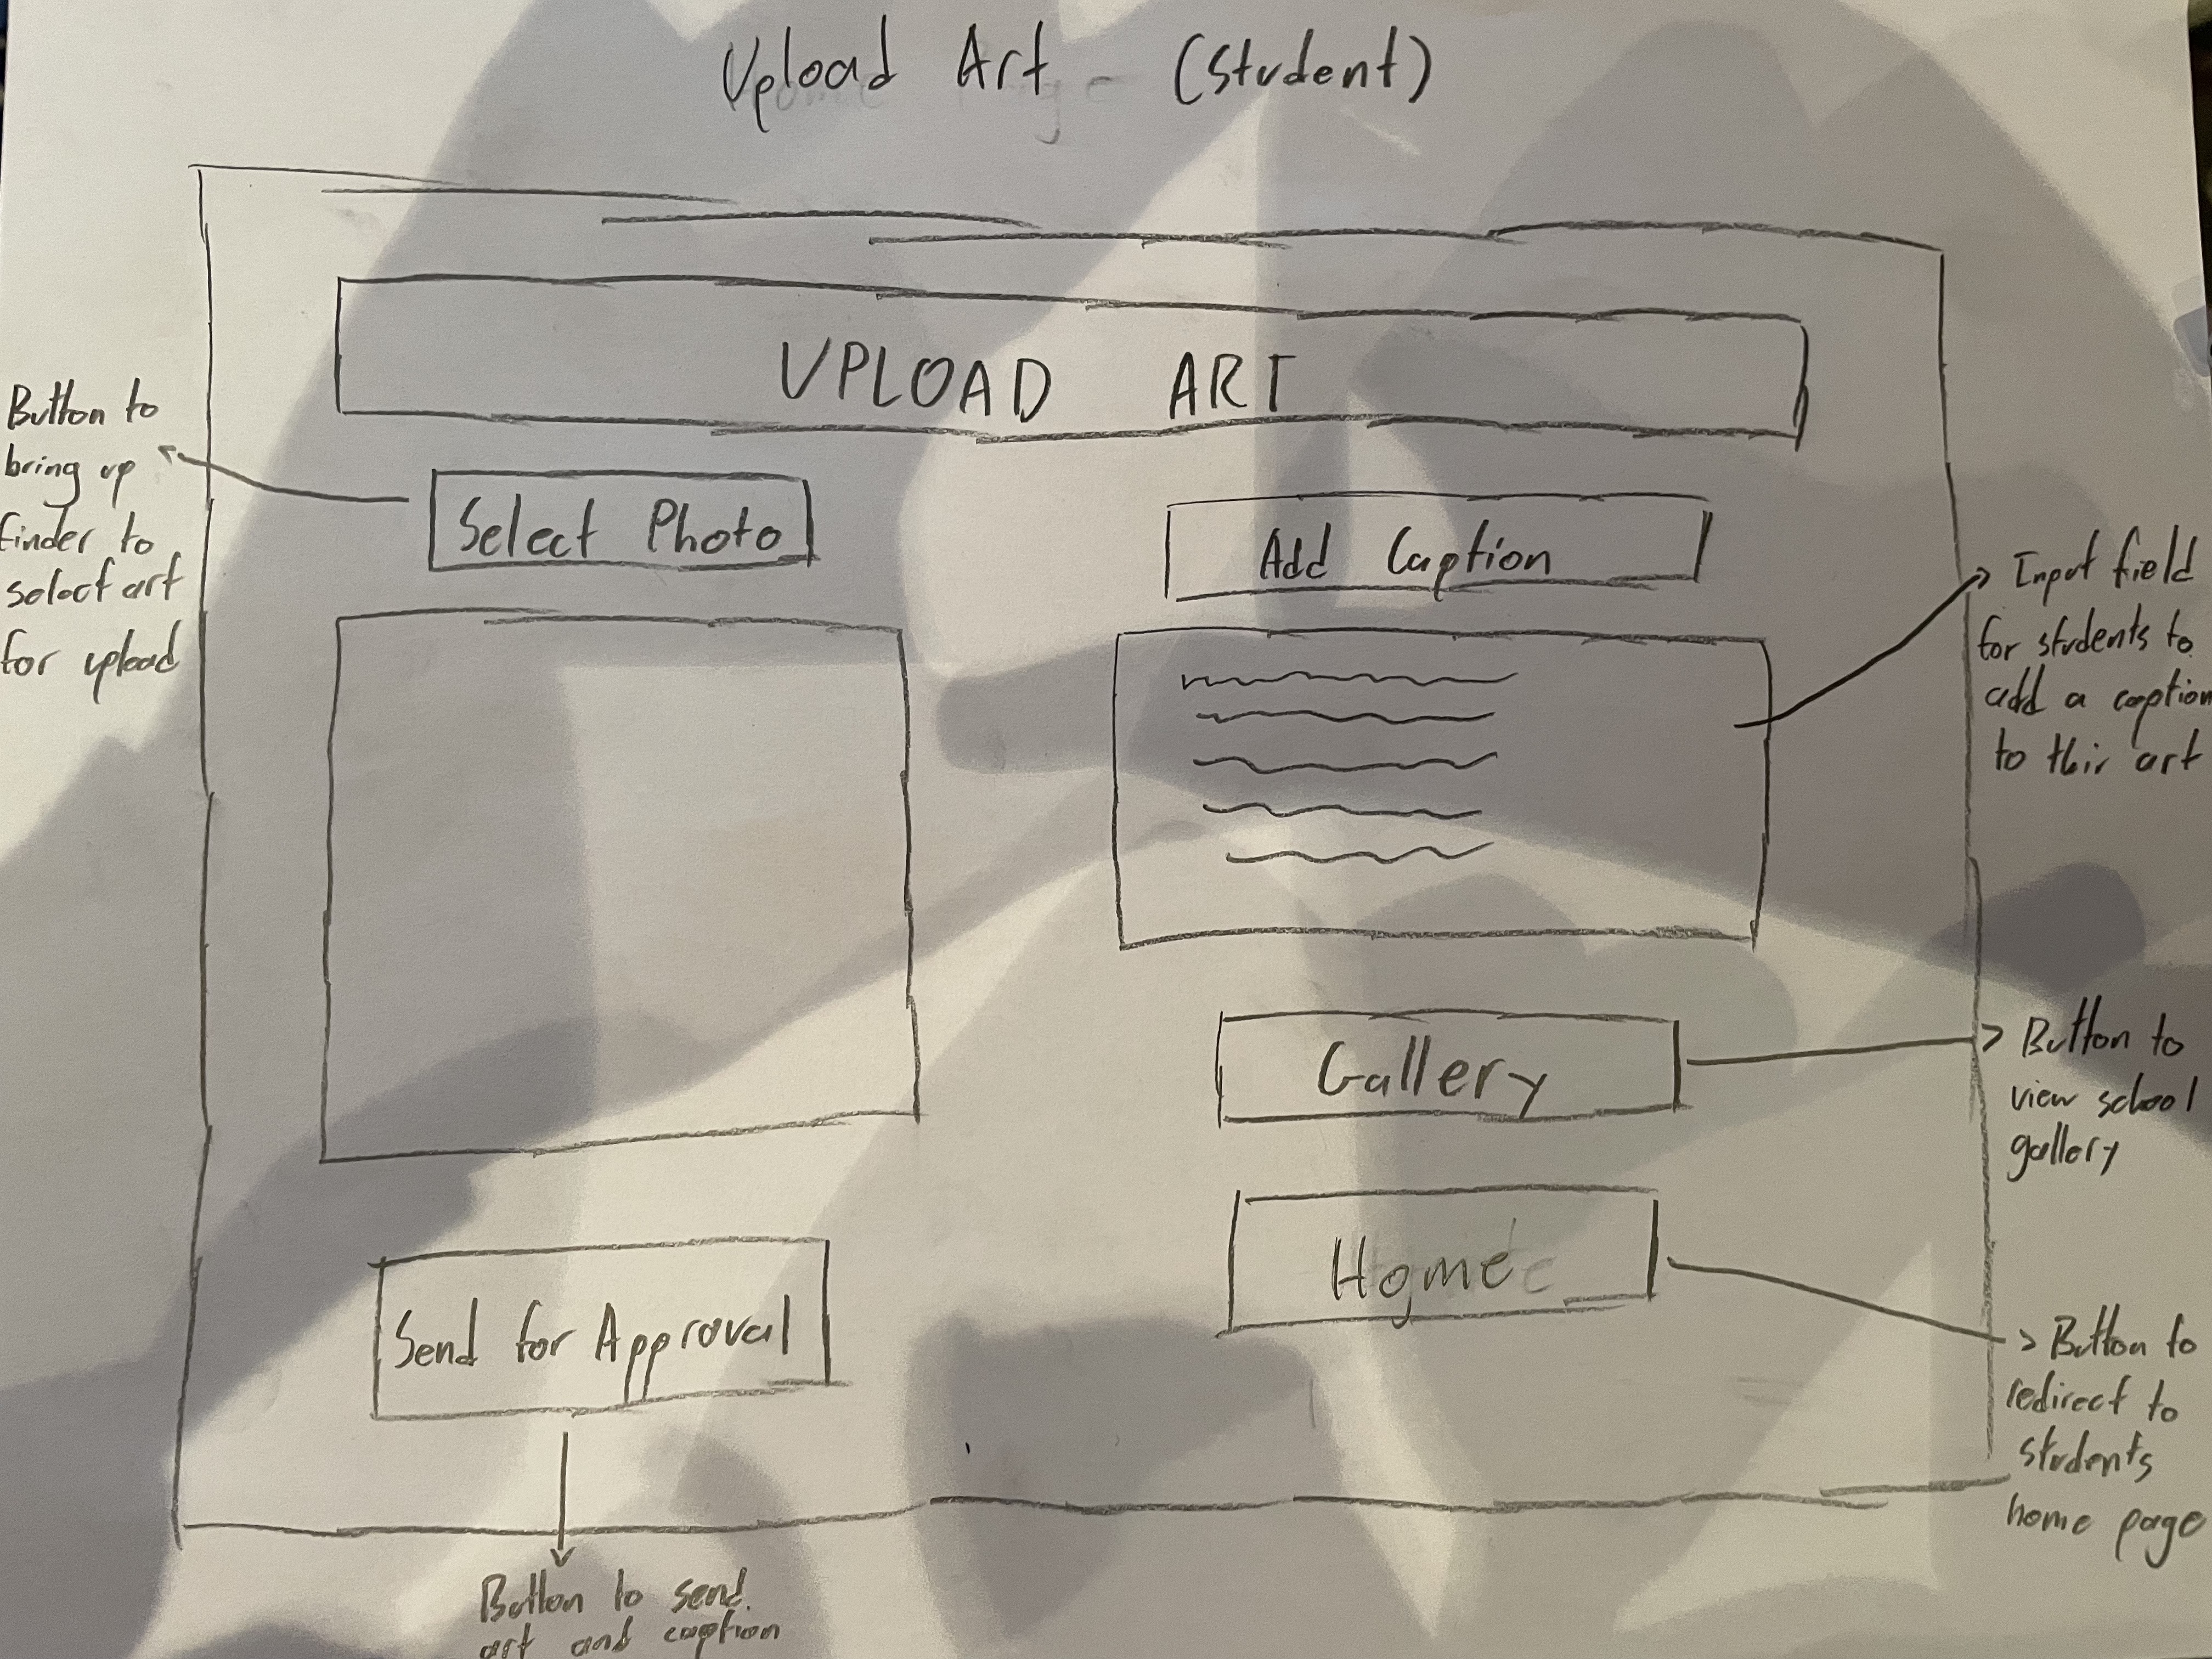 Upload Art - (Student)
UPLOAD ART
Button to
bring up
finder to
select art
for upload
Select Photo
Add Caption
Input field
for students to
add a caption
to thir art
Gallery
Button to
view school
gallery
Home
Button to
redirect to
students
home page
Send for Approval
Button to send
art and caption